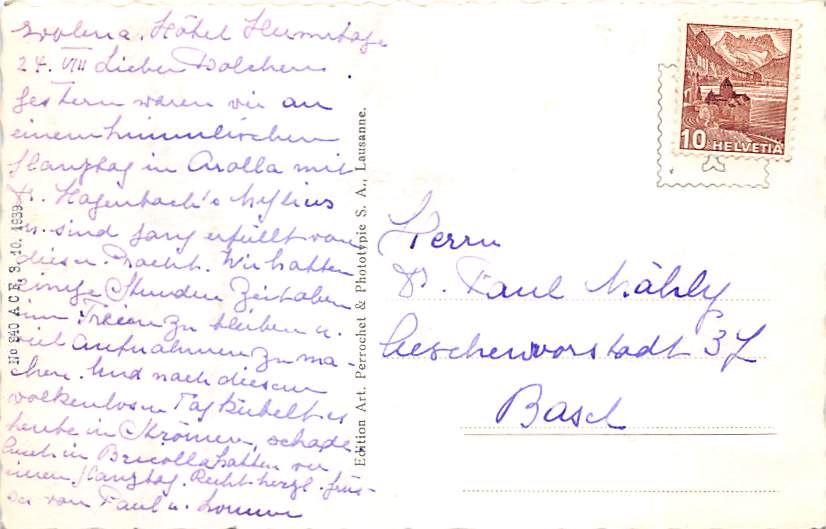 Evolena. Hôtel Hermitage
24. VIII Lieber
Gestern waren wir an
einem himmlischen
Glanztag in Arolla mit
Dr. Hagenbach's
u. sind ganz erfüllt von
dieser Pracht. Wir hatten
einige Stunden Zeit oben
im Freien zu bleiben u.
viel Aufnahmen zu ma-
chen. Und nach diesem
wolkenlosen Tag kübelt es
heute in Strömen, schade
Auch in Bricolla hatten wir
einen Glanztag. Recht herzl. Grüs-
se von Paul u.
No 940 A C E, 3. 10. 1939
Edition Art. Perrochet & Phototypie S. A., Lausanne.
10 HELVETIA
Herrn
Dr. Paul Mähly
Aeschenvorstadt 37
Basel